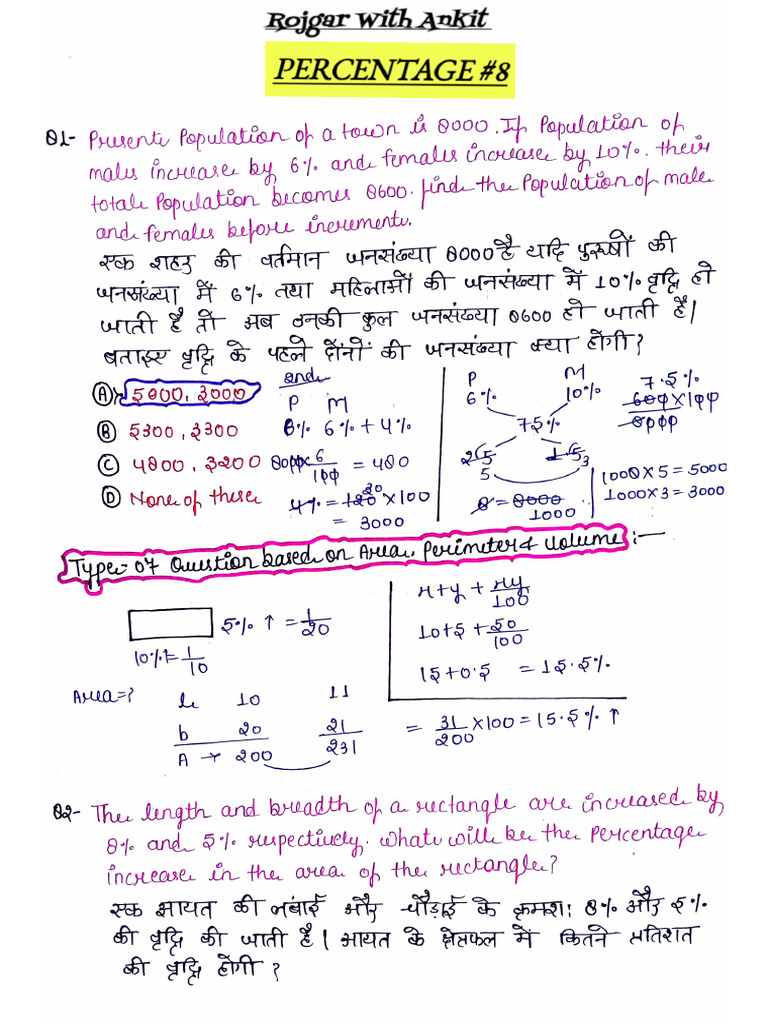 Rojgar With Ankit
PERCENTAGE #8
Q1- Present Population of a town is 8000. If Population of
males increase by 6% and females increase by 10%. their
total Population becomes 8600. find the Population of male
and females before increment.
एक शहर की वर्तमान जनसंख्या 8000 है यदि पुरुषों की
जनसंख्या में 6% तथा महिलाओं की जनसंख्या में 10% वृद्धि हो
जाती है तो अब उनकी कुल जनसंख्या 8600 हो जाती है।
बताइए वृद्धि के पहले दोनों की जनसंख्या क्या होगी?
(A) 5000, 3000
(B) 5300, 3300
(C) 4800, 3200
(D) None of these
2nd
P M
8% 6% + 4%
8000 × 6/100 = 480
4% = 120 × 100
20
= 3000
P M
6% 10%
7.5%
2.5 1.5
5 3
8 = 8000
1000
7.5%
600 × 100
8000
1000 × 5 = 5000
1000 × 3 = 3000
Type-07 Question based on Area, Perimeter & Volume :-
5% ↑ = 1/20
10% ↑ = 1/10
Area = ?
l 10 11
b 20 21
A → 200 231
x + y + xy/100
10 + 5 + 50/100
15 + 0.5 = 15.5%
= 31/200 × 100 = 15.5% ↑
Q2- The length and breadth of a rectangle are increased by
8% and 5% respectively. What will be the Percentage
increase in the area of the rectangle?
एक आयत की लंबाई और चौड़ाई के क्रमशः 8% और 5%
की वृद्धि की जाती है। आयत के क्षेत्रफल में कितने प्रतिशत
की वृद्धि होगी ?